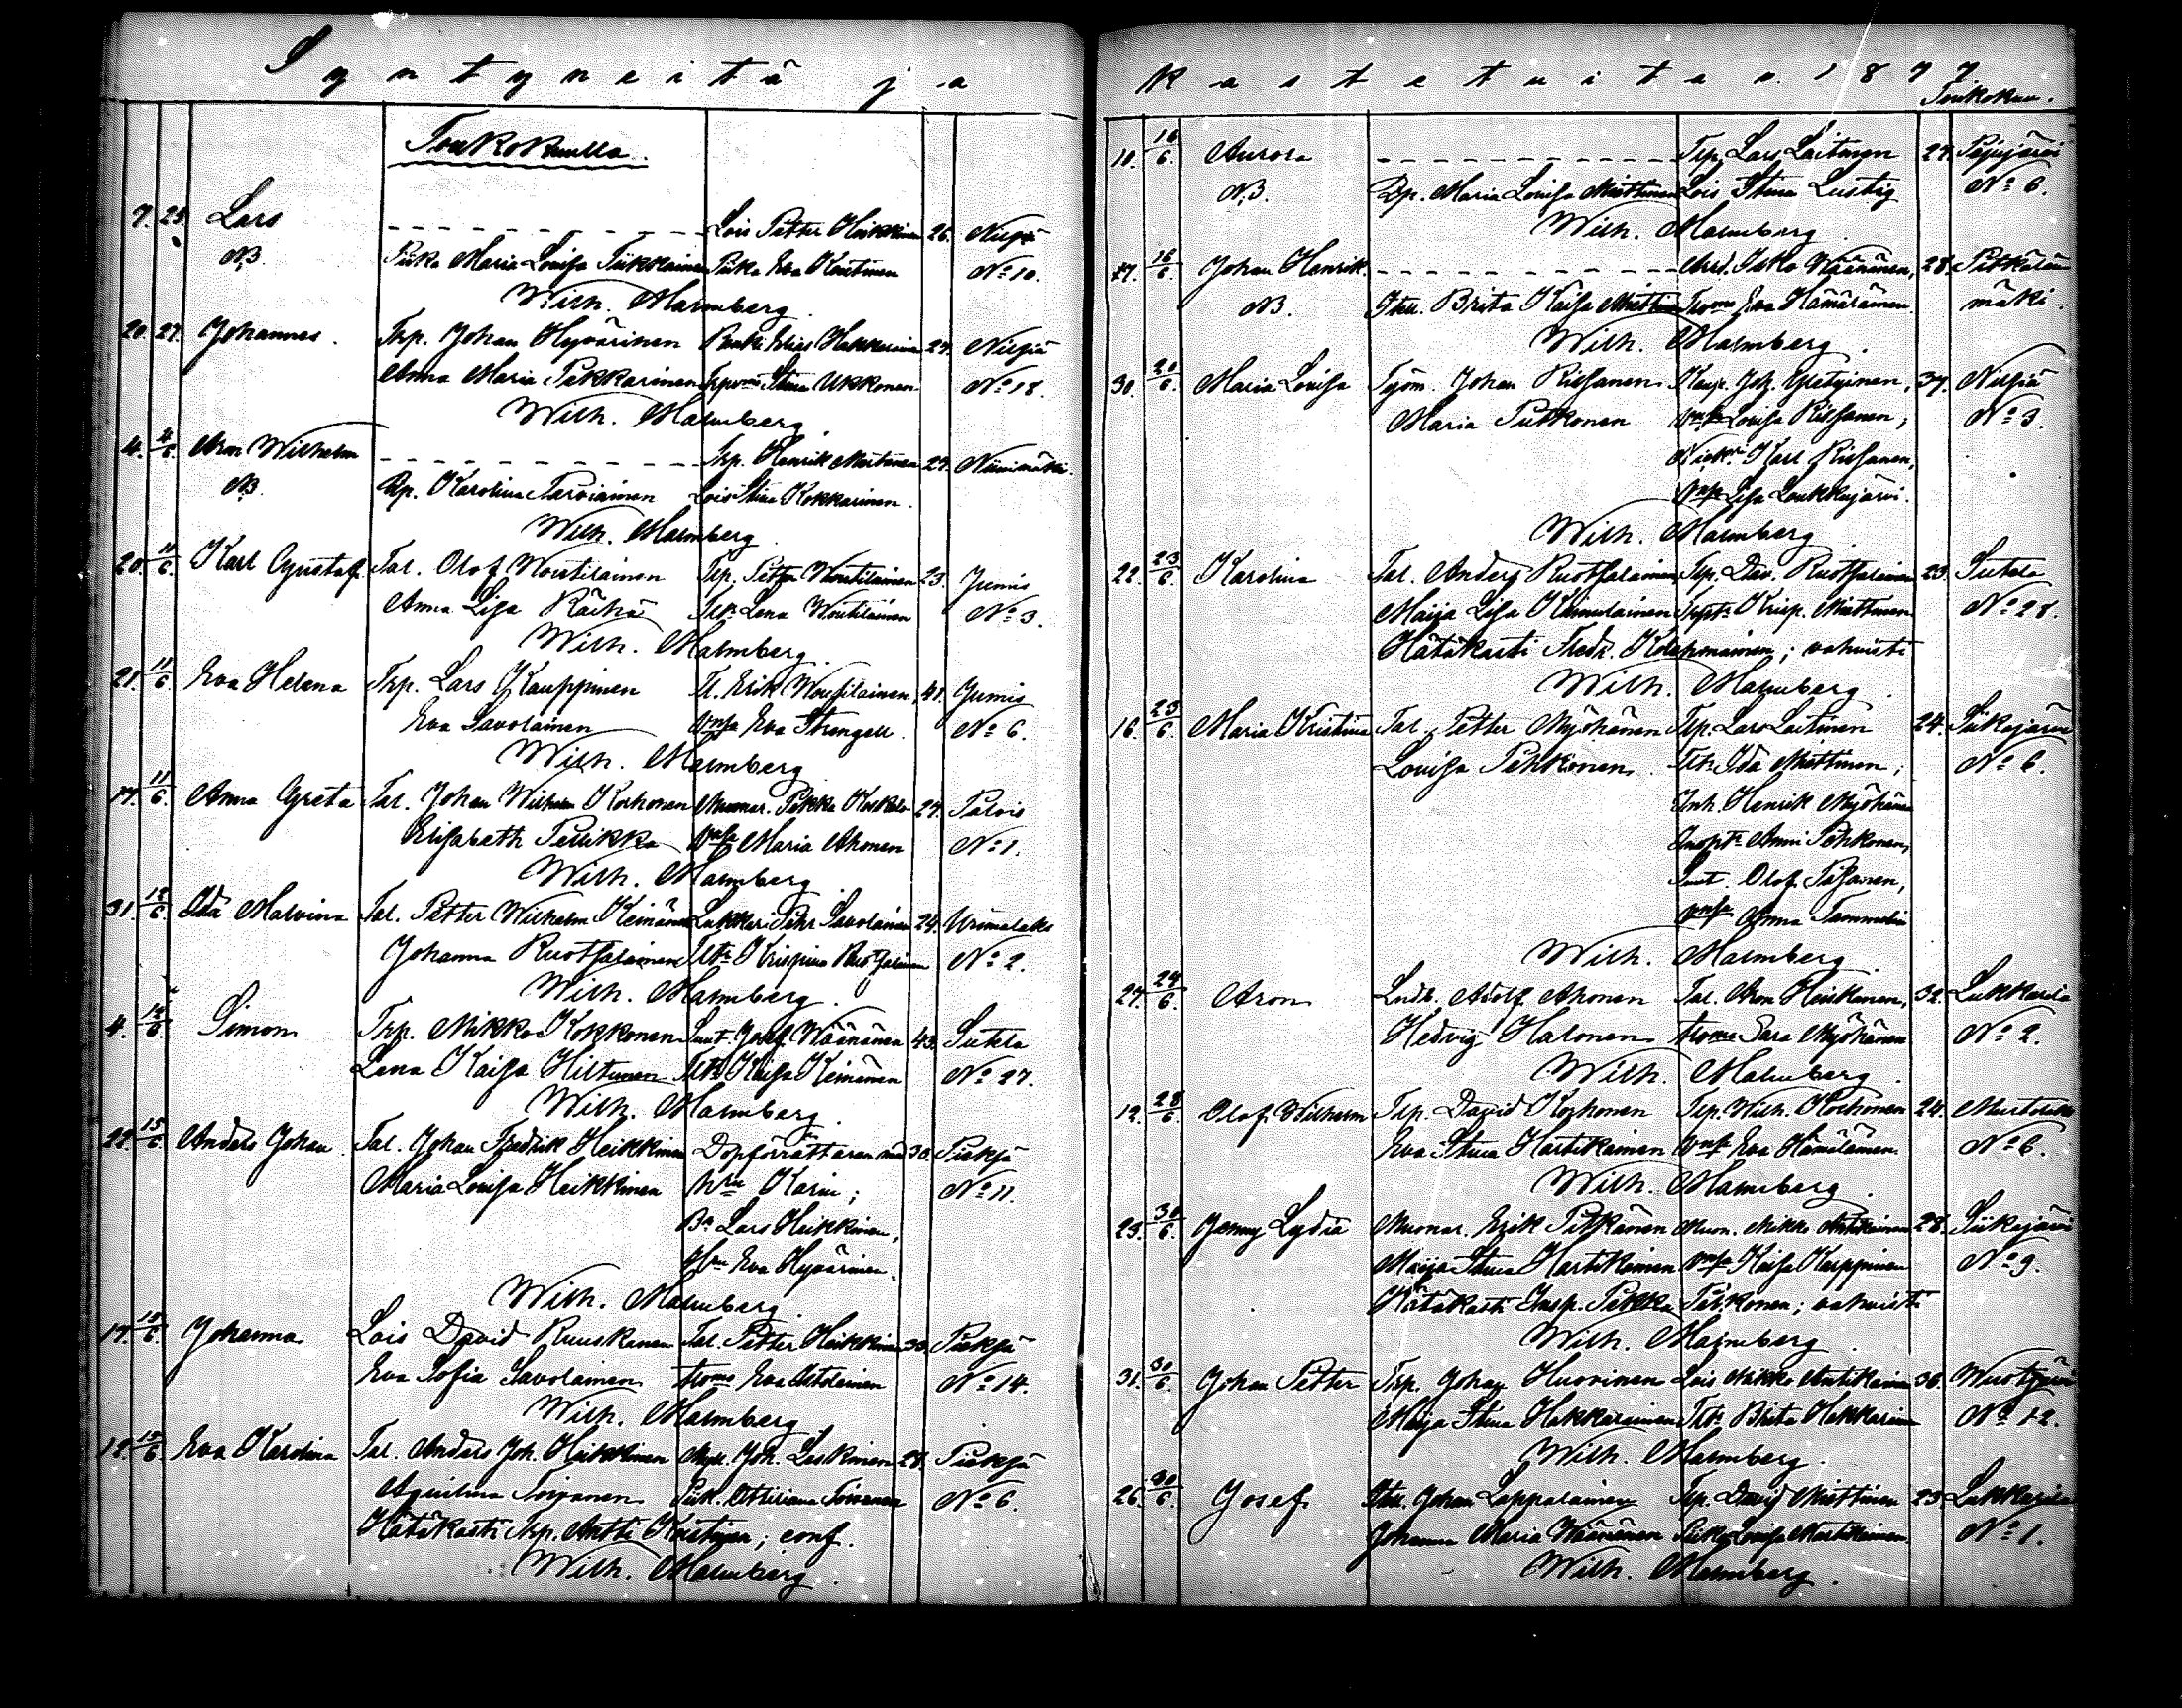 Syntyneitä ja
Toukokuulla.
7. 25. Lars - - - - - - - - - - Lois Petter Heikkinen 26. Nilsiä
NB. Piika Maria Louisa Tiikkainen Piika Eva Koistinen No 10.
Wilh. Malmberg.
20. 27. Johannes. Trp. Johan Hyvärinen Elias Hakkarainen 27. Nilsiä
Anna Maria Pekkarinen Stina Ukkonen No 18.
Wilh. Malmberg.
4. 4/6. Aron Wilhelm - - - - - - - - - - Trp. Henrik 27.
NB. Karolina Tarviainen Lois Stina Kokkarinen.
Wilh. Malmberg
20. 11/6. Karl Gustaf Tal. Olof Woutilainen Trp. Petter Woutilainen 23. Jumis
Anna Lisa Räihä Lena Woutilainen No 3.
Wilh. Malmberg.
21. 11/6. Eva Helena Trp. Lars Kauppinen Tl. Erik Woutilainen, 41. Jumis
Eva Savolainen Vmsa Eva Strengell. No 6.
Wilh. Malmberg
17. 11/6. Anna Greta Tal. Johan Wilhelm Korhonen Pekka 27. Palois
Elisabeth Pellikka Vmsa Maria Ahonen No 1.
Wilh. Malmberg.
31. 12/6. Ida Malvina Tal. Petter Wilhelm Keinänen Lukkari Pehr Savolainen 24.
Johanna Ruotsalainen Krispina Ruotsalainen No 2.
Wilh. Malmberg.
4. 12/6. Simon Trp. Mikko Kokkonen Josef Wäänänen 43. Sutela
Lena Kaisa Hiltunen Kaisa Keinänen No 27.
Wilh. Malmberg.
15/6. Anders Johan. Tal. Johan Fredrik Heikkinen Dopförrättaren med 30. Pieksä
Maria Louisa Heikkinen hru Karin; No 11.
Bn Lars Heikkinen,
Hru Eva Hyvärinen.
Wilh. Malmberg.
17. 15/6. Johanna Lois David Ruuskanen Tal. Petter Heikkinen 30. Pieksä
Eva Sofia Savolainen Eva No 14.
Wilh. Malmberg
15/6. Eva Karolina Tal. Anders Joh. Heikkinen Joh. Leskinen 28. Pieksä
Aqvilina Toivanen Piik. Toivanen No 6.
Hätäkasti Trp. Antti ; conf.
Wilh. Malmberg.
Kastetuita v. 1877.
Toukokuu.
10. 16/6. Aurora - - - - - - - - - - Trp. Lars Laitinen 27.
NB. Maria Louisa Miettinen Lois Stina Lustig No 6.
Wilh. Malmberg.
17. 16/6. Johan Henrik. - - - - - - - - - - Wäänänen, 28. Pitkälän
NB. Brita Kaisa Miettinen Eva Hämäläinen. mäki.
Wilh. Malmberg.
30. 20/6. Maria Louisa Työm. Johan Rissanen Joh. 37. Nilsiä
Maria Putkonen Vmsa Louisa Rissanen; No 3.
Karl Rissanen,
Vmsa Lisa Loukkujärvi.
Wilh. Malmberg
22. 23/6. Karolina Tal. Anders Ruotsalainen Trp. Dav. Ruotsalainen 23. Sutela
Maija Lisa Krisp. Miettinen No 28.
Hätäkasti Fredr. Kolehmainen; vahvisti
Wilh. Malmberg.
16. 23/6. Maria Kristina Tal. Petter Myöhänen Trp. Lars Laitinen 24. Siikajärvi
Louisa Pehkonen Ida Miettinen; No 6.
Henrik Myöhänen
Anni Pehkonen,
Olof
Vmsa Anna
Wilh. Malmberg.
27. 24/6. Aron Adolf Ahonen Tal. Aron Heiskanen, 32. Lukkarila
Hedvig Halonen Sara Myöhänen No 2.
Wilh. Malmberg.
12. 28/6. Olof Wilhelm Trp. David Korhonen Trp. Wilh. Korhonen 24.
Eva Stina Hartikainen Vmsa Eva Hämäläinen. No 6.
Wilh. Malmberg.
25. 30/6. Jenny Lydia Muonar. Erik Pitkänen Muon. Mikko 28. Siikajärvi
Maija Stina Hartikainen Vmsa Kaisa Kauppinen No 9.
Hätäkasti Pekka ; vahvisti
Wilh. Malmberg.
31. 30/6. Johan Petter Trp. Johan Huovinen Lois Mikko Antikainen 36. Wuotjärvi
Maija Stina Hakkarainen Brita Hakkarainen No 12.
Wilh. Malmberg.
26. 30/6. Josef Johan Lappalainen Trp. David Miettinen 23. Lukkarila
Johanna Maria Wäänänen Piika Louisa Martikainen. No 1.
Wilh. Malmberg.